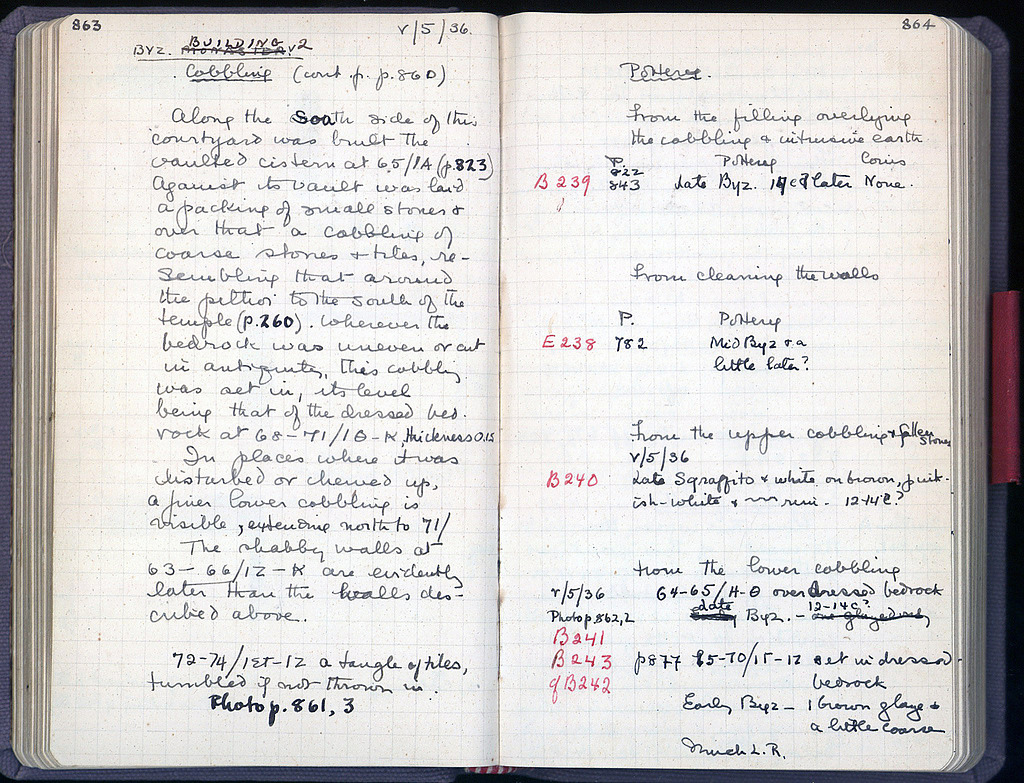 863
v/5/36.
BUILDING
BYZ. MONASTERY 2
Cobbling (cont. fr. p. 860)
Along the South side of this
courtyard was built the
vaulted cistern at 65/IA (p. 823)
Against its vault was laid
a packing of small stones &
over that a cobbling of
coarse stones & tiles, re-
sembling that around
the pithoi to the south of the
temple (p. 260). Wherever the
bedrock was uneven or cut
in antiquity, this cobbling
was set in, its level
being that of the dressed bed.
rock at 68-71/IΘ-K, thickness 0.15
In places where it was
disturbed or chewed up,
a finer lower cobbling is
visible, extending north to 71/
The shabby walls at
63-66/IZ-K are evidently
later than the walls des-
cribed above.
72-74/IΣΤ-IZ a tangle of tiles,
tumbled if not thrown in.
Photo p. 861, 3
864
Pottery.
From the filling overlying
the cobbling & intrusive earth
P. Pottery Coins
822
B 239 843 Late Byz. 14 c & later None.
From cleaning the walls
P. Pottery
E 238 782 Mid Byz & a
little later?
From the upper cobbling & fallen
stones
v/5/36
B 240 Late Sgraffito & white on brown, pink-
ish-white & rim. 12-14 C?
From the lower cobbling
v/5/36 64-65/H-Θ over dressed bedrock
late 12-14 C?
Photo p 862, 2 Early Byz. - one glazed only
B 241
B 243 p 877 65-70/IΣ-IZ set in dressed
bedrock
B 242
Early Byz - 1 brown glaze &
a little coarse
Much L.R.